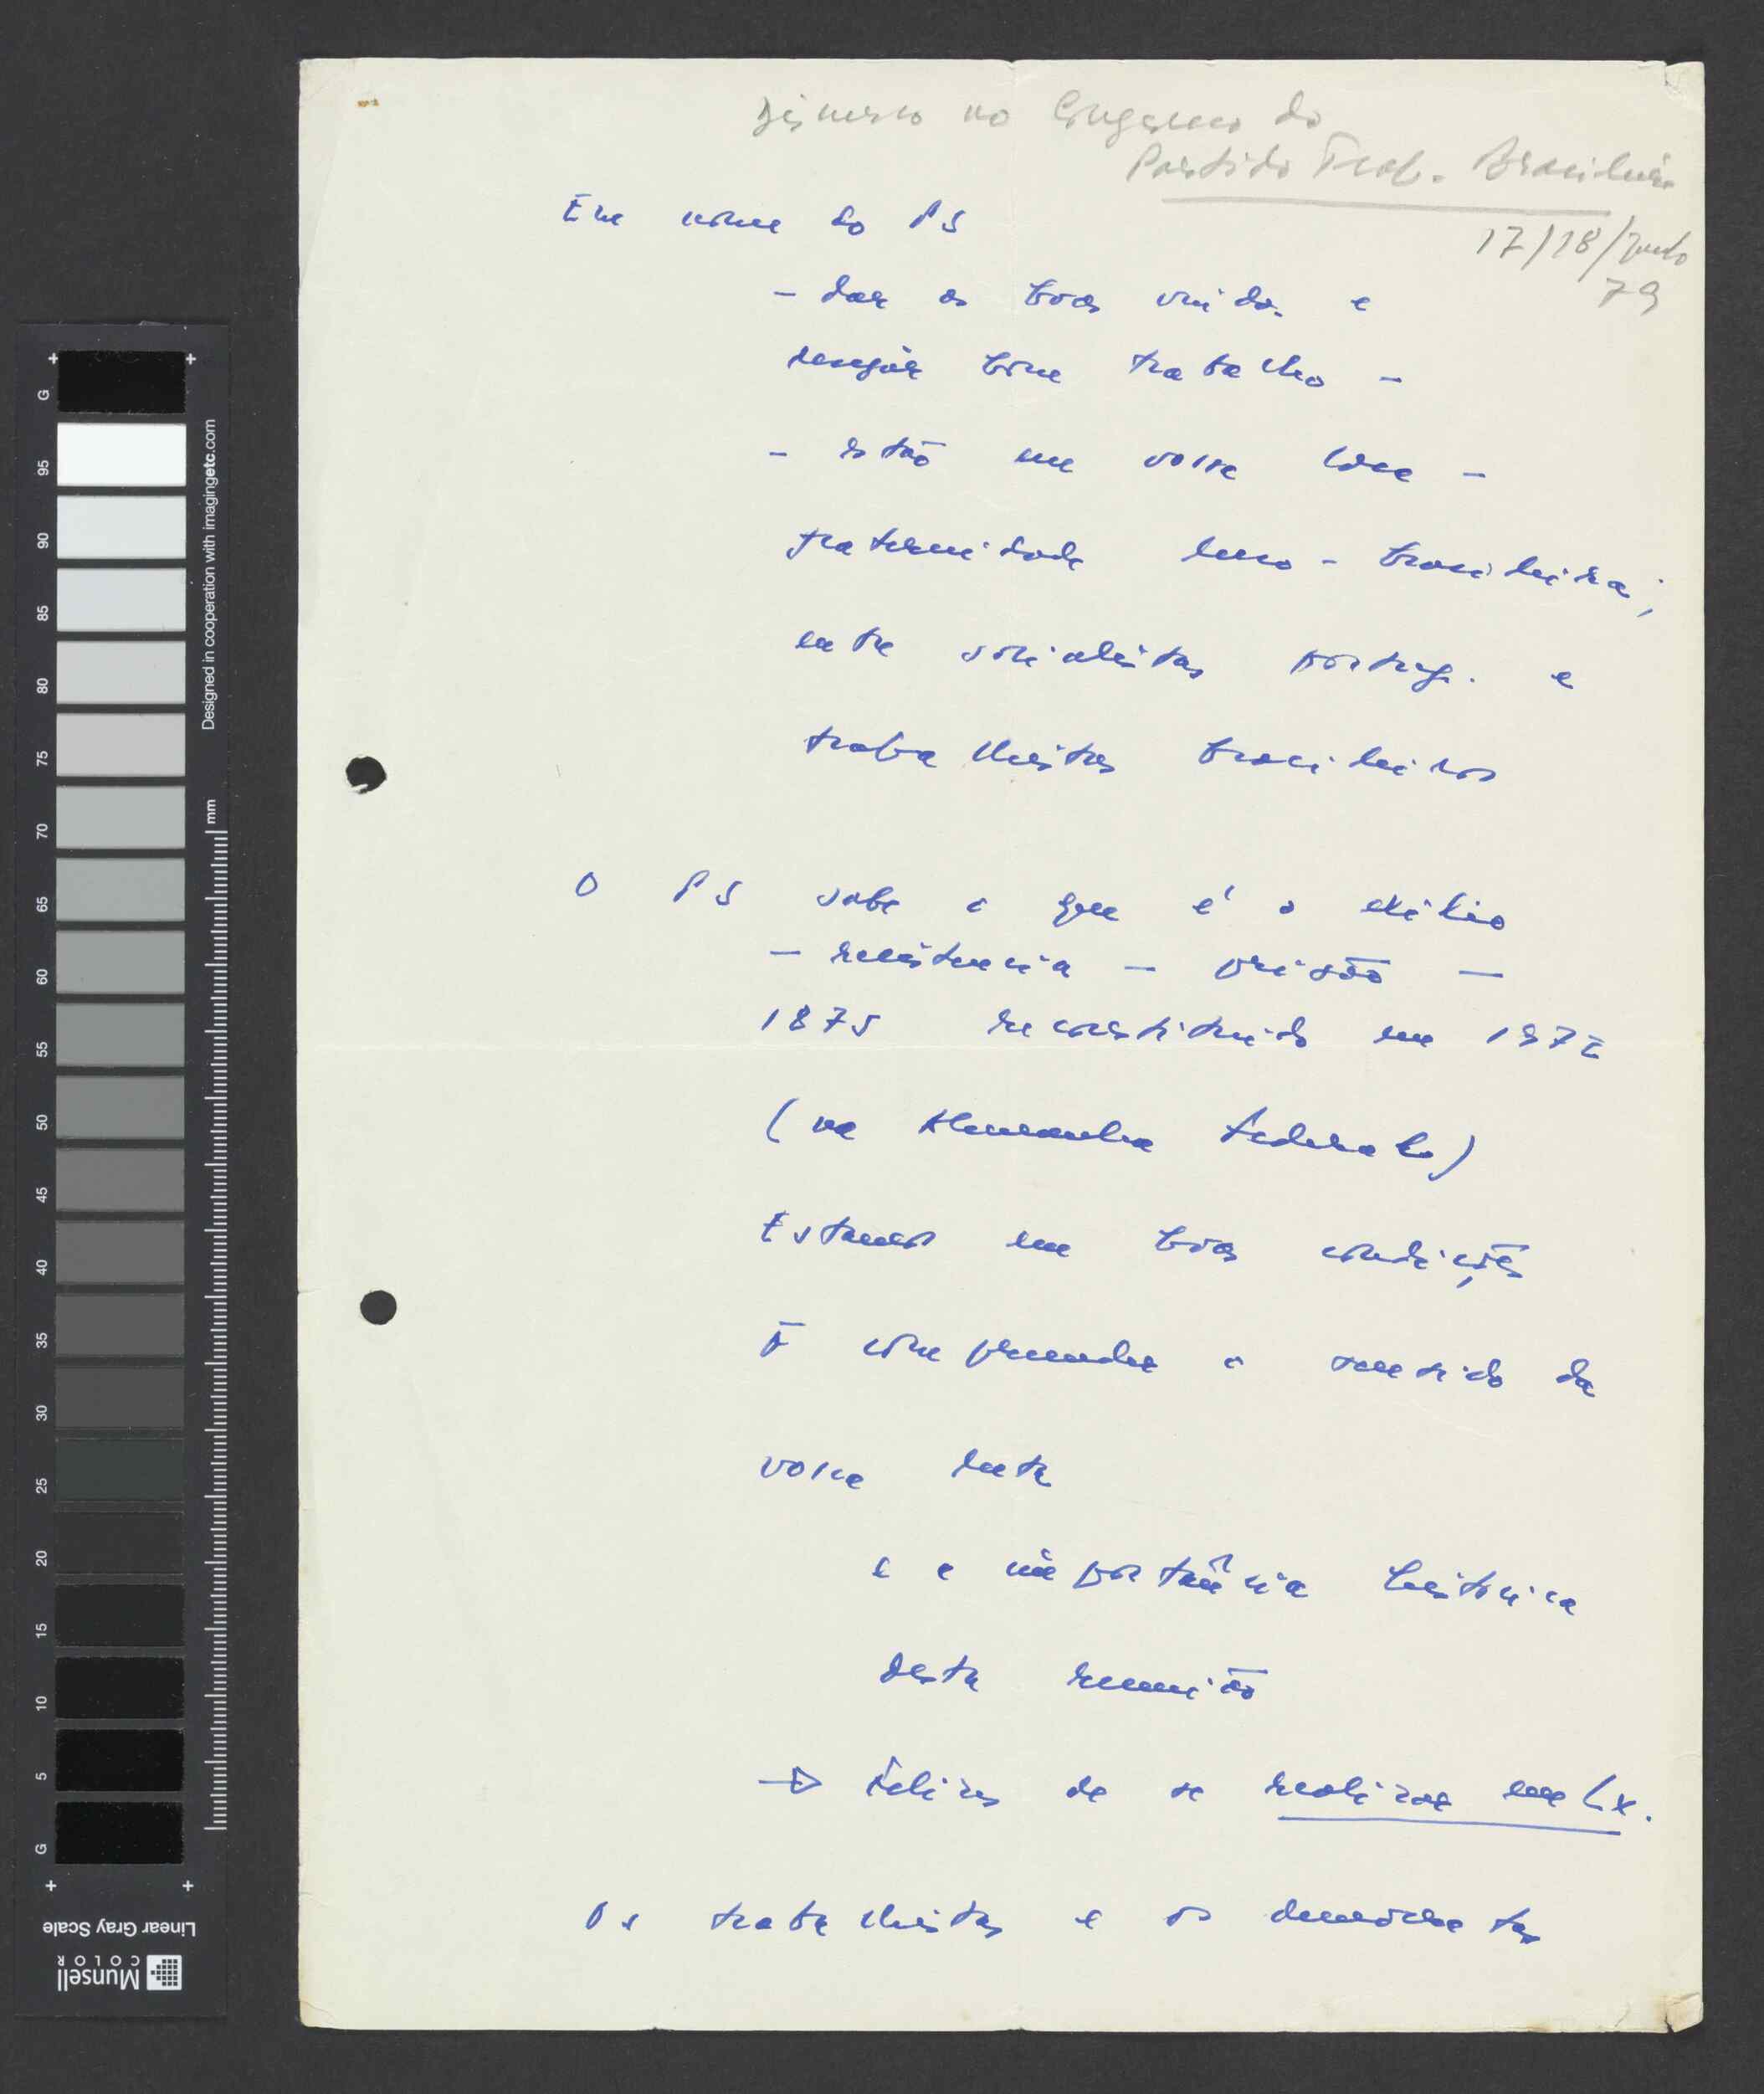 Discurso no Congresso do
Partido Trab. Brasileiro
17/18/Junho
79
Em nome do PS
- dar as boas vindas e
desejar bom trabalho -
- estão em vossa casa -
fraternidade luso-brasileira;
entre socialistas portug. e
trabalhistas brasileiros
O PS sabe o que é o exílio
- resistencia - prisão -
1875 reconstituido em 1972
(na Alemanha Federal)
Estamos em boas condições
compreender o sentido da
vossa luta
e a importância historica
desta reunião
→ Felizes de se realizar em Lx.
Os trabalhistas e os democratas
G
95
90
85
80
75
70
65
60
55
50
45
40
35
30
25
20
15
10
5
G
Designed in cooperation with imagingetc.com
mm
Linear Gray Scale
Munsell
COLOR